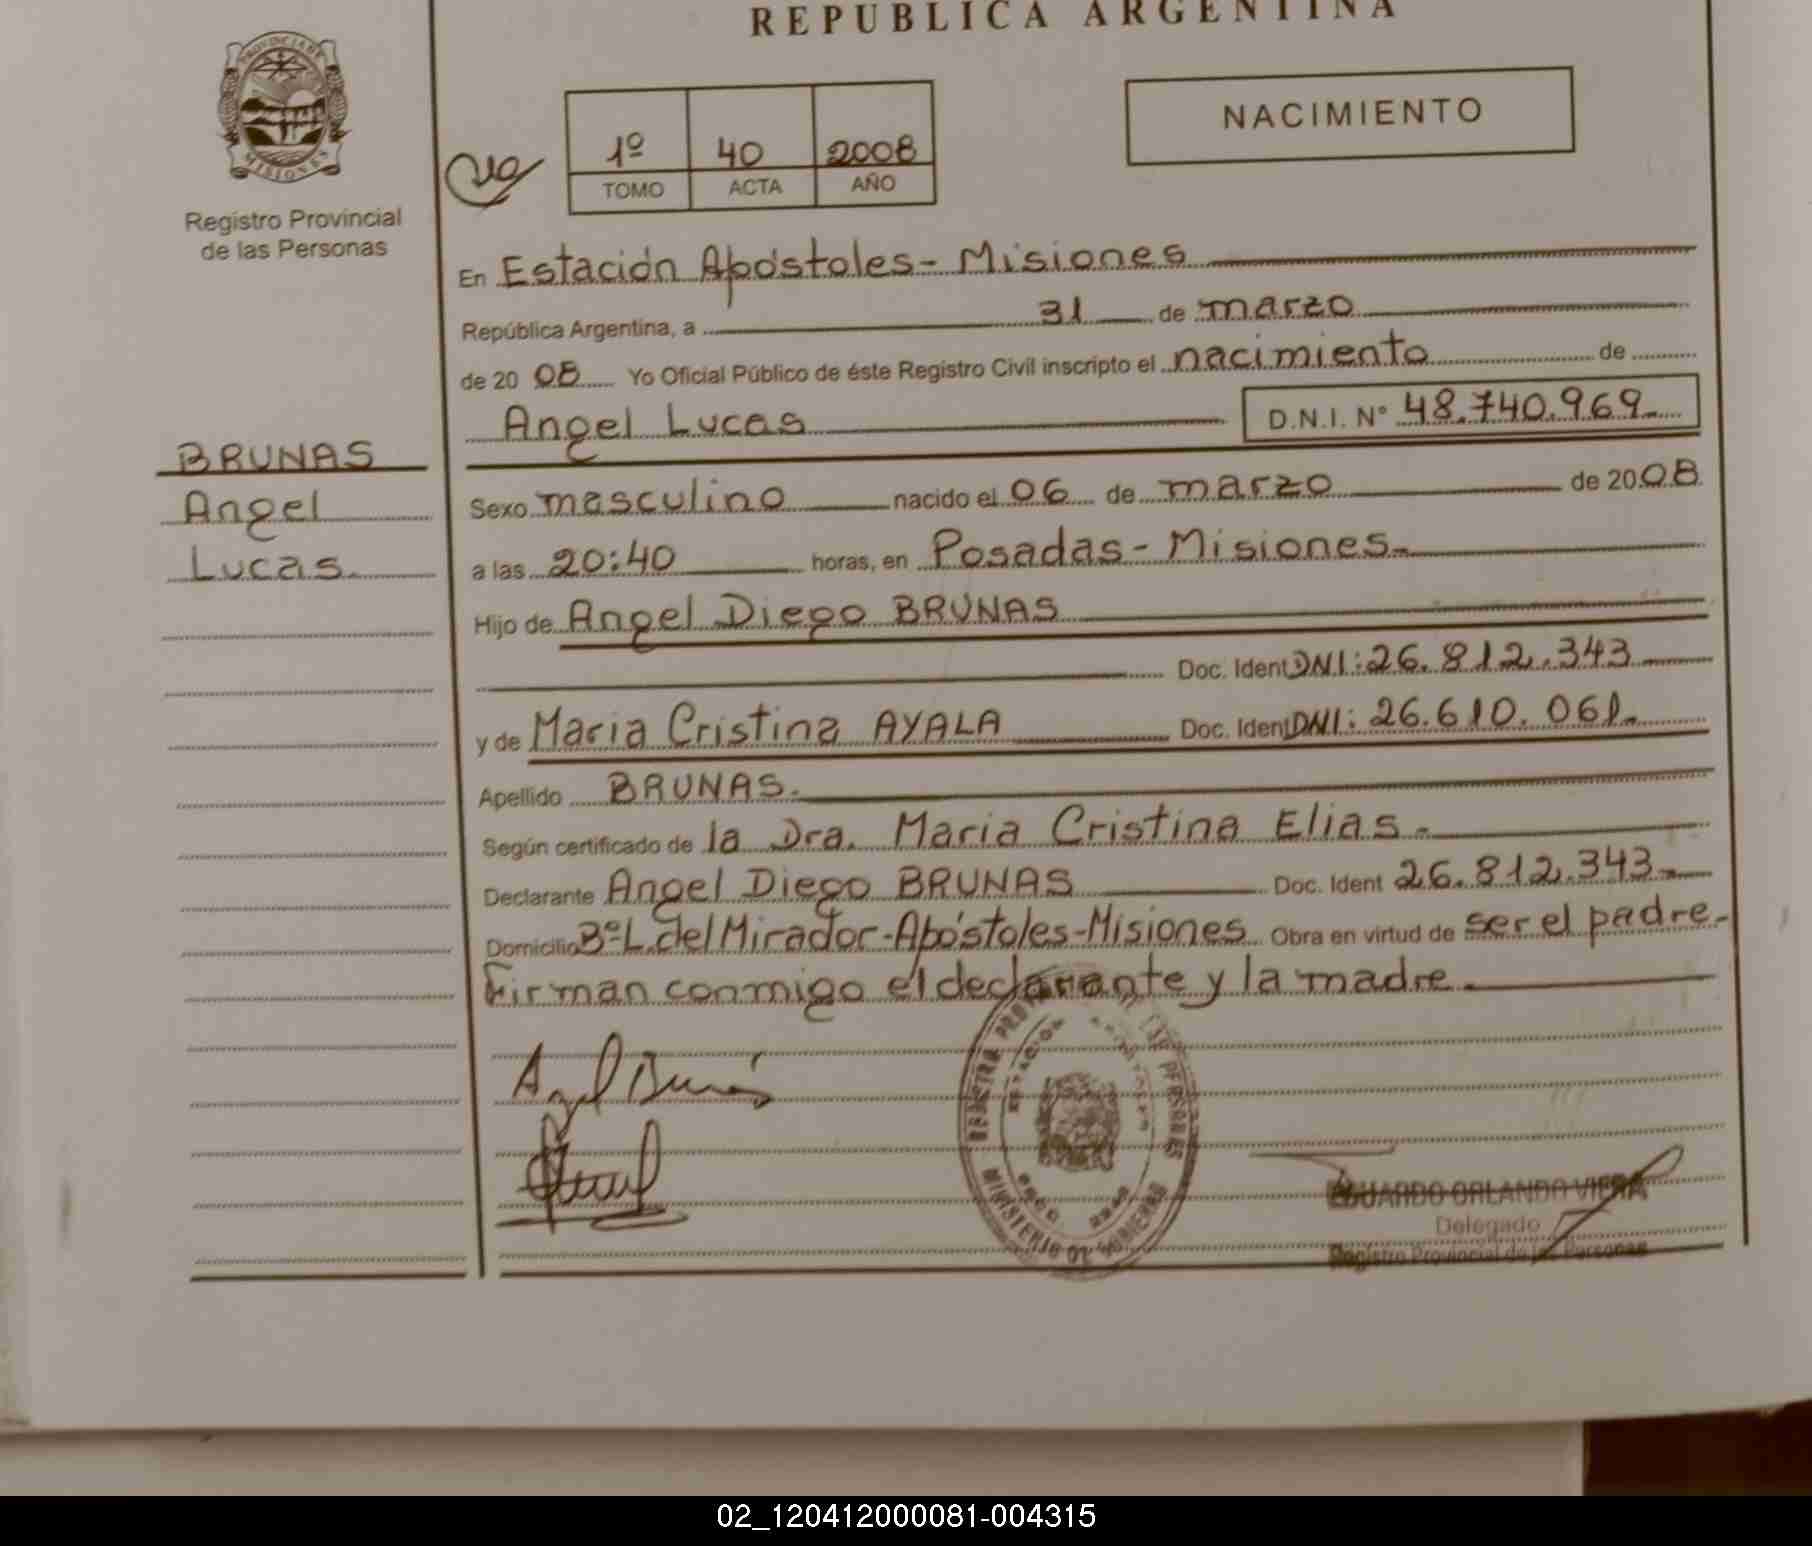 REPUBLICA ARGENTINA
PROVINCIA DE
MISIONES
Registro Provincial
de las Personas
NACIMIENTO
1º 40 2008
TOMO ACTA AÑO
En Estación Apóstoles - Misiones
República Argentina, a 31 de marzo
de 20 08 Yo Oficial Público de éste Registro Civil inscripto el nacimiento de
Angel Lucas D.N.I. Nº 48.740.969
BRUNAS
Angel
Lucas.
Sexo masculino nacido el 06 de marzo de 2008
a las 20:40 horas, en Posadas - Misiones.
Hijo de Angel Diego BRUNAS
Doc. Ident DNI: 26.812.343
y de Maria Cristina AYALA Doc. Ident DNI: 26.610.061.
Apellido BRUNAS.
Según certificado de la Dra. Maria Cristina Elias.
Declarante Angel Diego BRUNAS Doc. Ident 26.812.343
Domicilio Bº L. del Mirador - Apóstoles - Misiones Obra en virtud de ser el padre.
Firman conmigo el declarante y la madre.
EDUARDO ORLANDO VIERA
Delegado
Registro Provincial de las Personas
MINISTERIO DE GOBIERNO
02_120412000081-004315